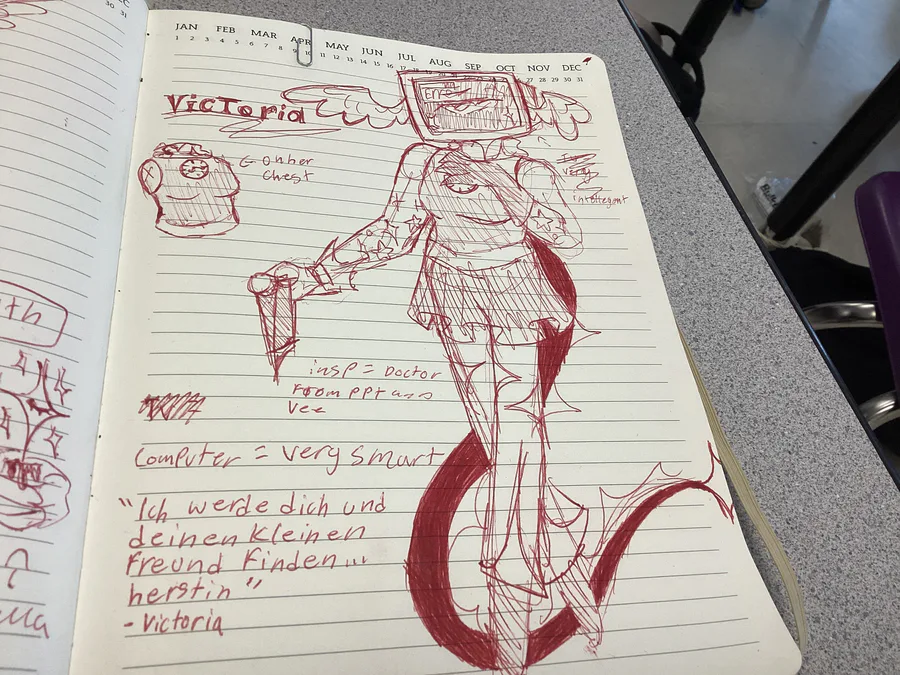 JAN FEB MAR APR MAY JUN JUL AUG SEP OCT NOV DEC
1 2 3 4 5 6 7 8 9 10 11 12 13 14 15 16 17 27 28 29 30 31
30 31
Victoria
Erro
← onher
chest
very
intellegent
insp = Doctor
from ppt
Vee
Computer = very smart
"Ich werde dich und
deinen kleinen
Freund Finden...
herstin"
- Victoria